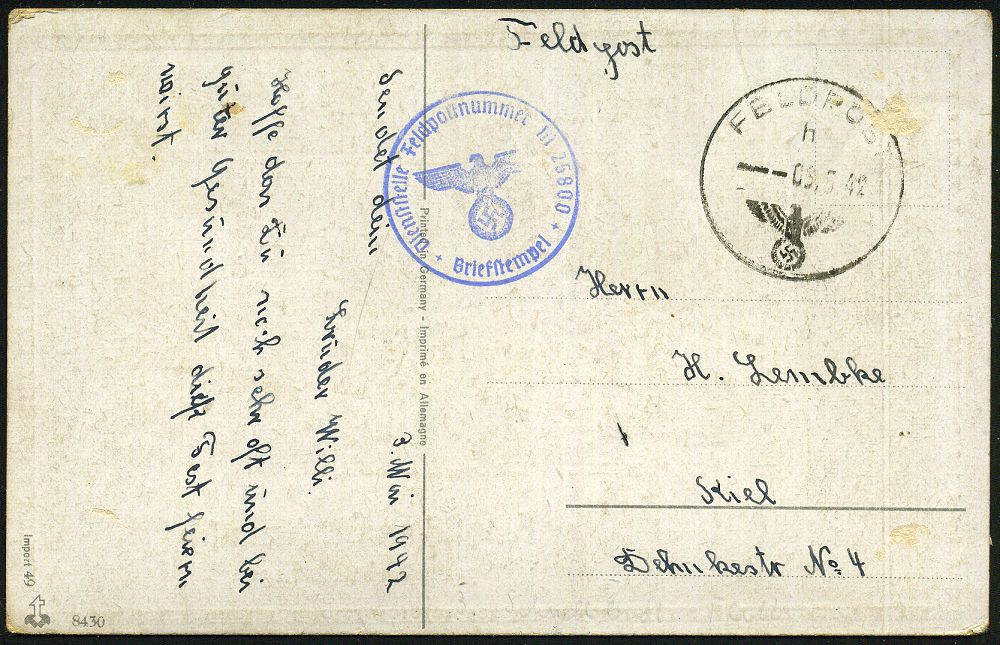 Feldpost
FELDPOST
h
09.5.42
Dienststelle Feldpostnummer M 25800
Briefstempel
Herrn
H. Lembke
Kiel
Dehnkestr No. 4
Printed in Germany - Imprimé en Allemagne
3. Mai 1942
sendet dein
Bruder Willi.
Hoffe das Du noch sehr oft und bei
guter Gesundheit dieß Fest feiern
wirst.
Import 49
8430